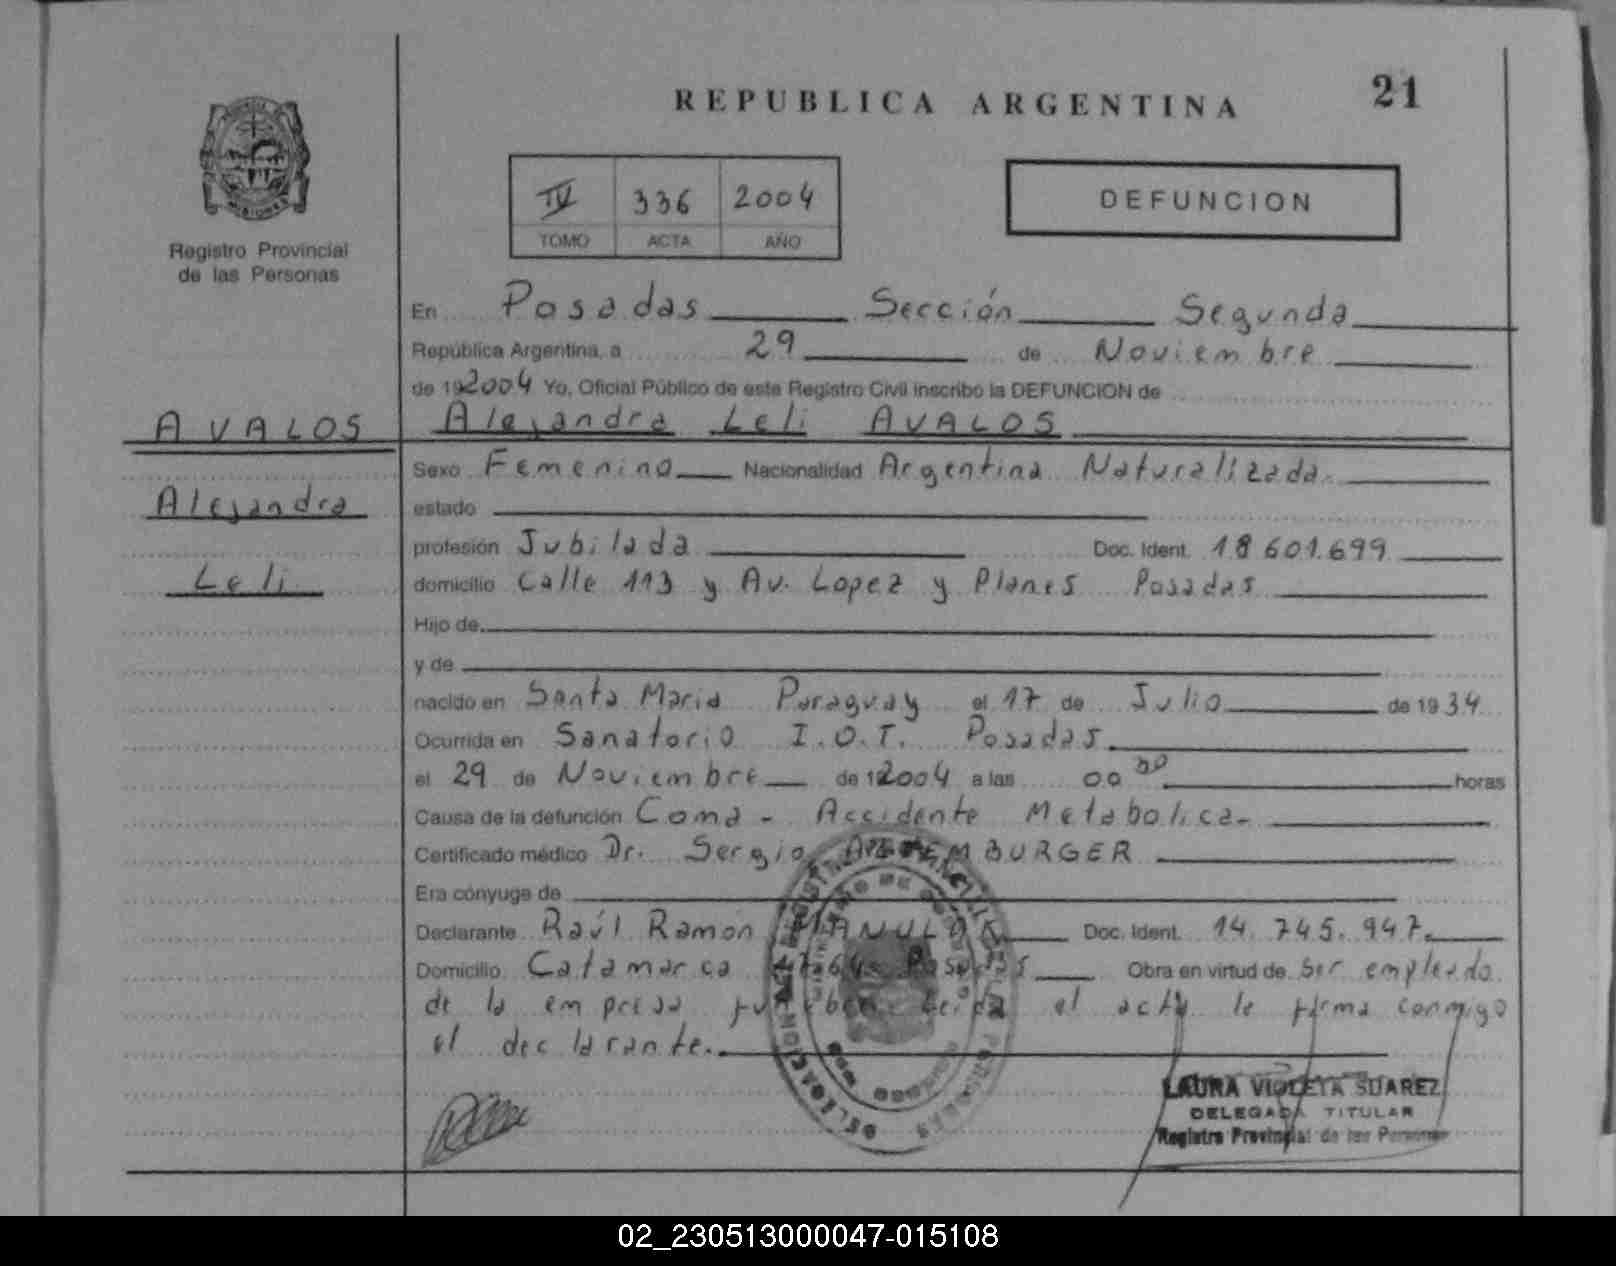 REPUBLICA ARGENTINA
21
IV 336 2004
TOMO ACTA AÑO
DEFUNCION
MISIONES
Registro Provincial
de las Personas
En Posadas Sección Segunda
República Argentina, a 29 de Noviembre
de 192004 Yo, Oficial Público de este Registro Civil inscribo la DEFUNCION de
AVALOS
Alejandra Leli AVALOS
Sexo Femenino Nacionalidad Argentina Naturalizada.
Alejandra
estado
profesión Jubilada Doc. Ident. 18 601.699
Leli
domicilio Calle 113 y Av. Lopez y Planes Posadas
Hijo de
y de
nacido en Santa Maria Paraguay el 17 de Julio de 1934
Ocurrida en Sanatorio I.O.T. Posadas
el 29 de Noviembre de 12004 a las 00 00 horas
Causa de la defunción Coma - Accidente Metabolica-
Certificado médico Dr. Sergio BURGER
Era cónyuge de
Declarante Raúl Ramón Doc. Ident. 14.745.947.
Domicilio Catamarca Posadas Obra en virtud de Ser empleado
de la empresa Leida el acta le firma conmigo
el declarante.
LAURA VIOLETA SUAREZ
DELEGADA TITULAR
Registro Provincial de las Personas
02_230513000047-015108